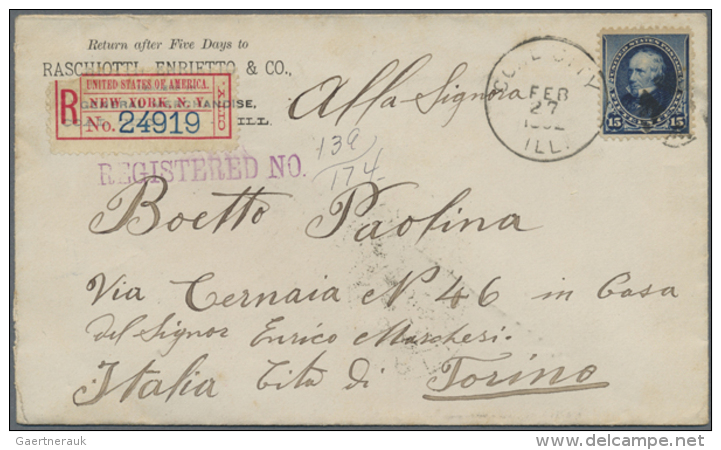 Return after Five Days to
RASCHIOTTI, ENRIETTO & CO.,
R
UNITED STATES OF AMERICA.
NEW YORK, N. Y.
No. 24919
ILL.
REGISTERED NO.
139
174
Alla Signora
COAL CITY
FEB
27
ILL.
15 15
Boetto Paolina
Via Cernaia N 46 in Casa
del Signor Enrico Marchesi.
Italia Cita di Torino
Gaertnerauk
delcampe.net